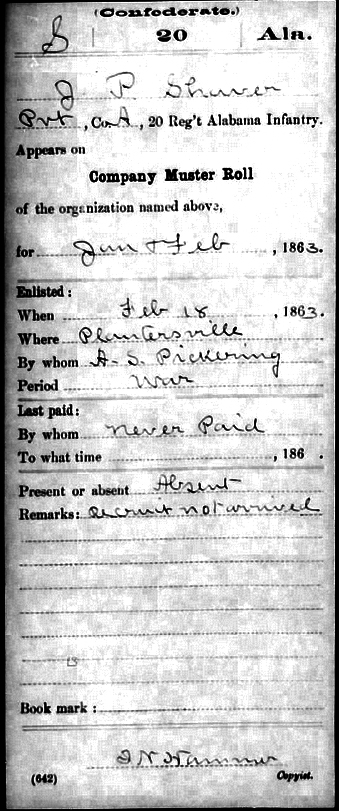 (Confederate.)
S | 20 | Ala.
J P Shaver
Pvt, Co. A, 20 Reg't Alabama Infantry.
Appears on
Company Muster Roll
of the organization named above,
for Jan & Feb, 1863.
Enlisted:
When Feb 18, 1863.
Where Plantersville
By whom A. S. Pickering
Period War
Last paid:
By whom Never Paid
To what time , 186 .
Present or absent Absent
Remarks: Recruit not arrived
13
Book mark:
(642) Copyist.